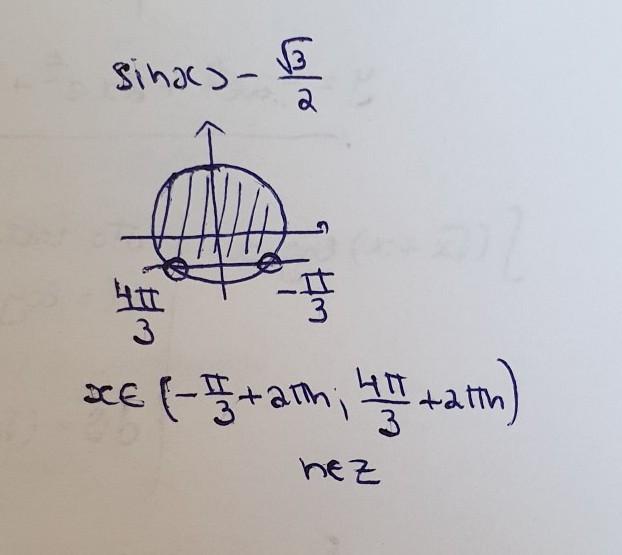 sinx > - √3/2
4π/3
-π/3
x∈(-π/3+2πn; 4π/3+2πn)
n∈Z